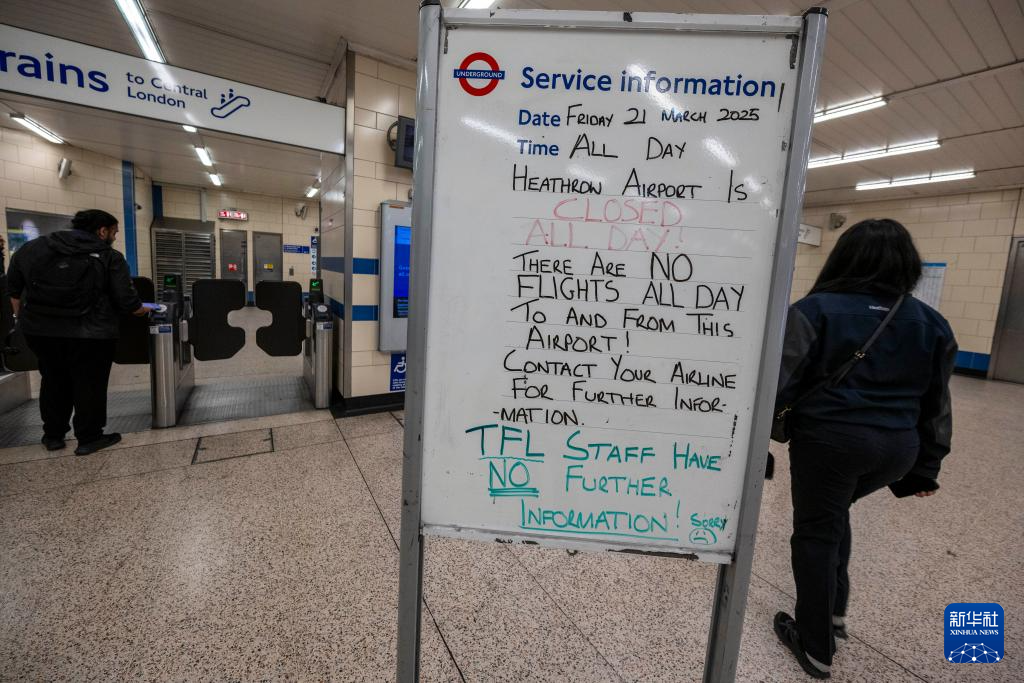 rains to Central
London
UNDERGROUND
Service information
Date FRIDAY 21 MARCH 2025
Time ALL DAY
HEATHROW AIRPORT IS
CLOSED
ALL DAY!
THERE ARE NO
FLIGHTS ALL DAY
TO AND FROM THIS
AIRPORT!
CONTACT YOUR AIRLINE
FOR FURTHER INFOR-
-MATION.
TFL STAFF HAVE
NO FURTHER
INFORMATION! SORRY
新华社
XINHUA NEWS